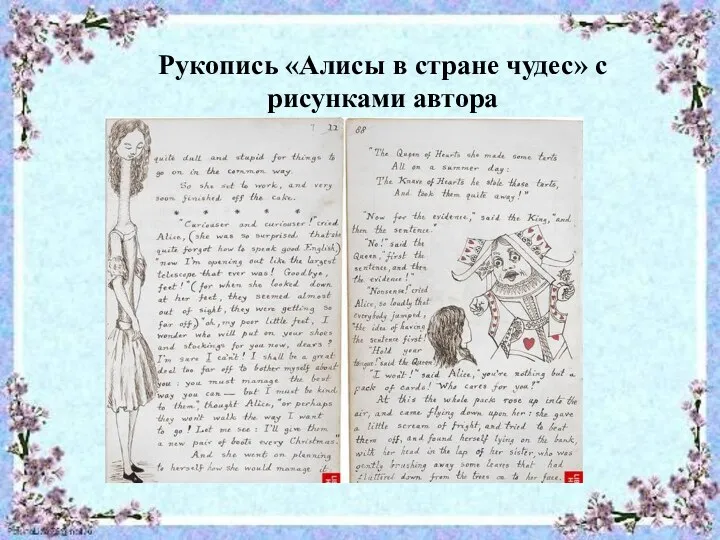 Рукопись «Алисы в стране чудес» с
рисунками автора
22
quite dull and stupid for things to
go on in the common way.
So she set to work, and very
soon finished off the cake.
* * * * *
"Curiouser and curiouser!" cried
Alice, (she was so surprised that she
quite forgot how to speak good English,)
"now I'm opening out like the largest
telescope that ever was! Goodbye,
feet!" (for when she looked down
at her feet, they seemed almost
out of sight, they were getting so
far off,) "oh, my poor little feet, I
wonder who will put on your shoes
and stockings for you now, dears?
I'm sure I can't! I shall be a great
deal too far off to bother myself about
you: you must manage the best
way you can — but I must be kind
to them", thought Alice, "or perhaps
they won't walk the way I want
to go! Let me see: I'll give them
a new pair of boots every Christmas."
And she went on planning
to herself how she would manage it
88
"The Queen of Hearts she made some tarts
All on a summer day:
The Knave of Hearts he stole those tarts,
And took them quite away!"
"Now for the evidence," said the King, "and
then the sentence."
"No!" said the
Queen, "first the
sentence, and then
the evidence!"
"Nonsense!" cried
Alice, so loudly that
everybody jumped,
"the idea of having
the sentence first!"
"Hold your
tongue!" said the Queen.
"I won't!" said Alice, "you're nothing but a
pack of cards! Who cares for you?"
At this the whole pack rose up into the
air, and came flying down upon her: she gave
a little scream of fright, and tried to beat
them off, and found herself lying on the bank,
with her head in the lap of her sister, who was
gently brushing away some leaves that had
fluttered down from the trees on to her face.